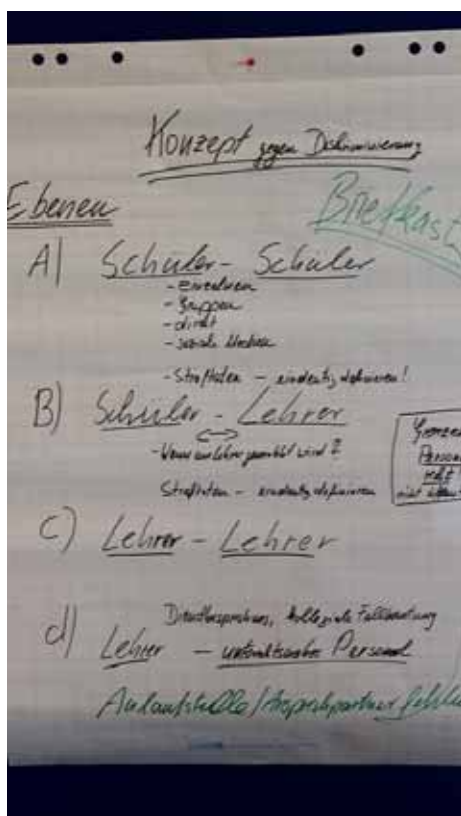 Konzept gegen Diskriminierung
Ebenen
Briefkast
A) Schüler - Schüler
- einzelnen
- Gruppen
- direkt
- soziale Medien
- Straftaten - eindeutig definieren!
B) Schüler - Lehrer
- Wenn ein Lehrer gemobbt wird?
Straftaten - eindeutig definieren
Grenzen
Person
nicht
C) Lehrer - Lehrer
Dienstbesprechung, kollegiale Fallberatung
d) Lehrer - Personal
Anlaufstelle/Ansprechpartner fehlen